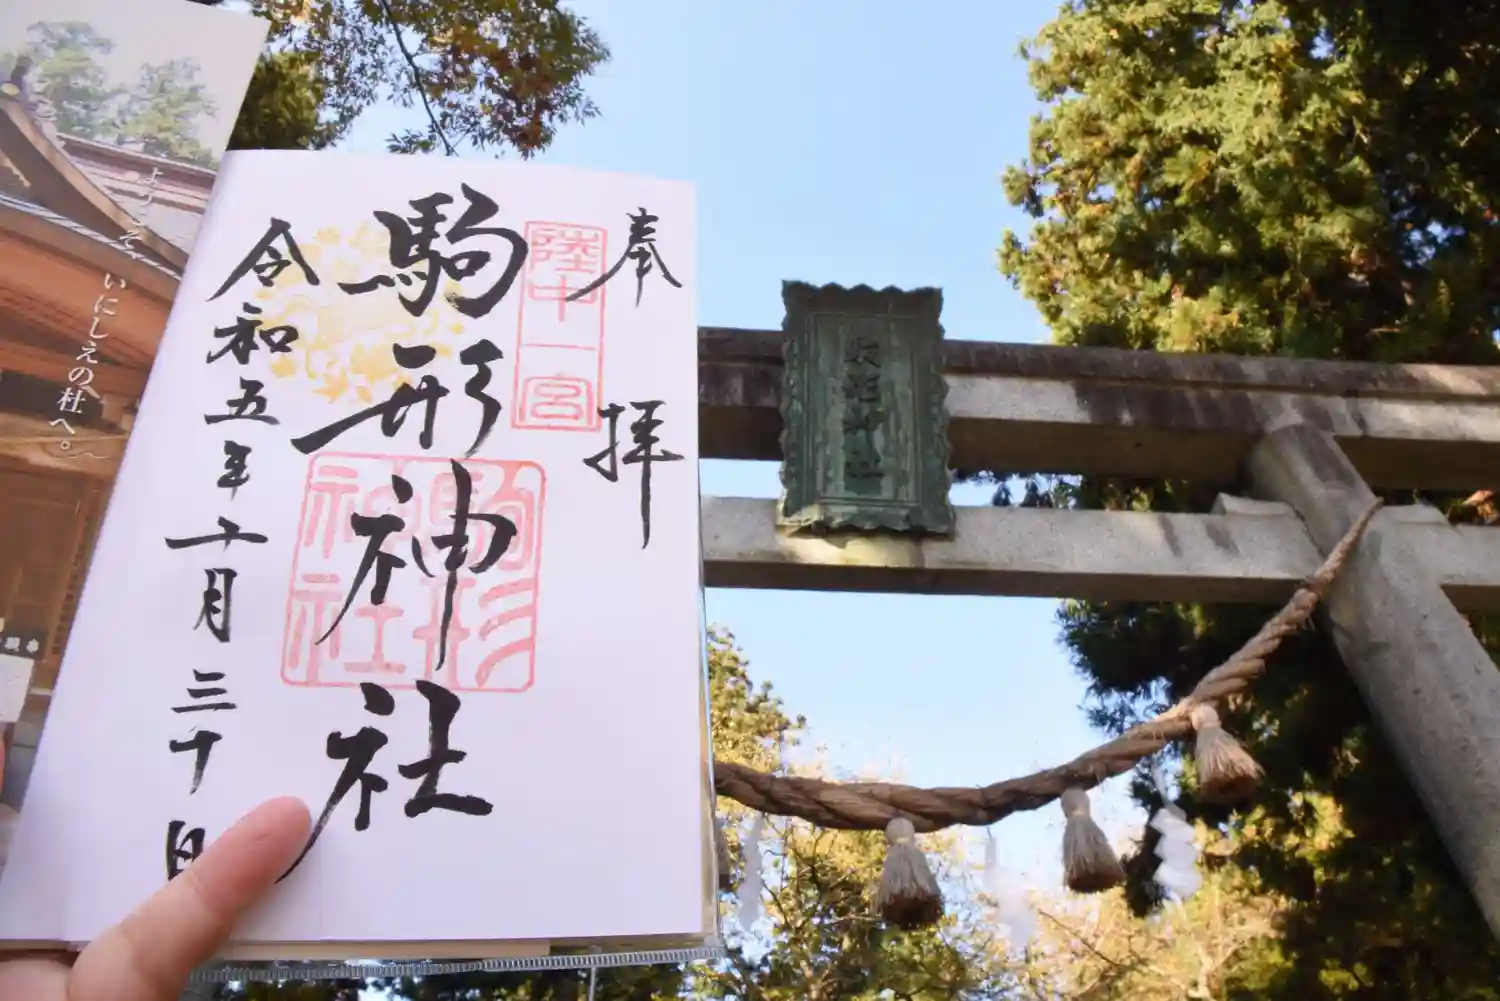 奉拝
陸中一宮
駒形神社
駒形神社
令和五年十月三十日
ようこそ、
いにしえの杜へ。
駒形神社